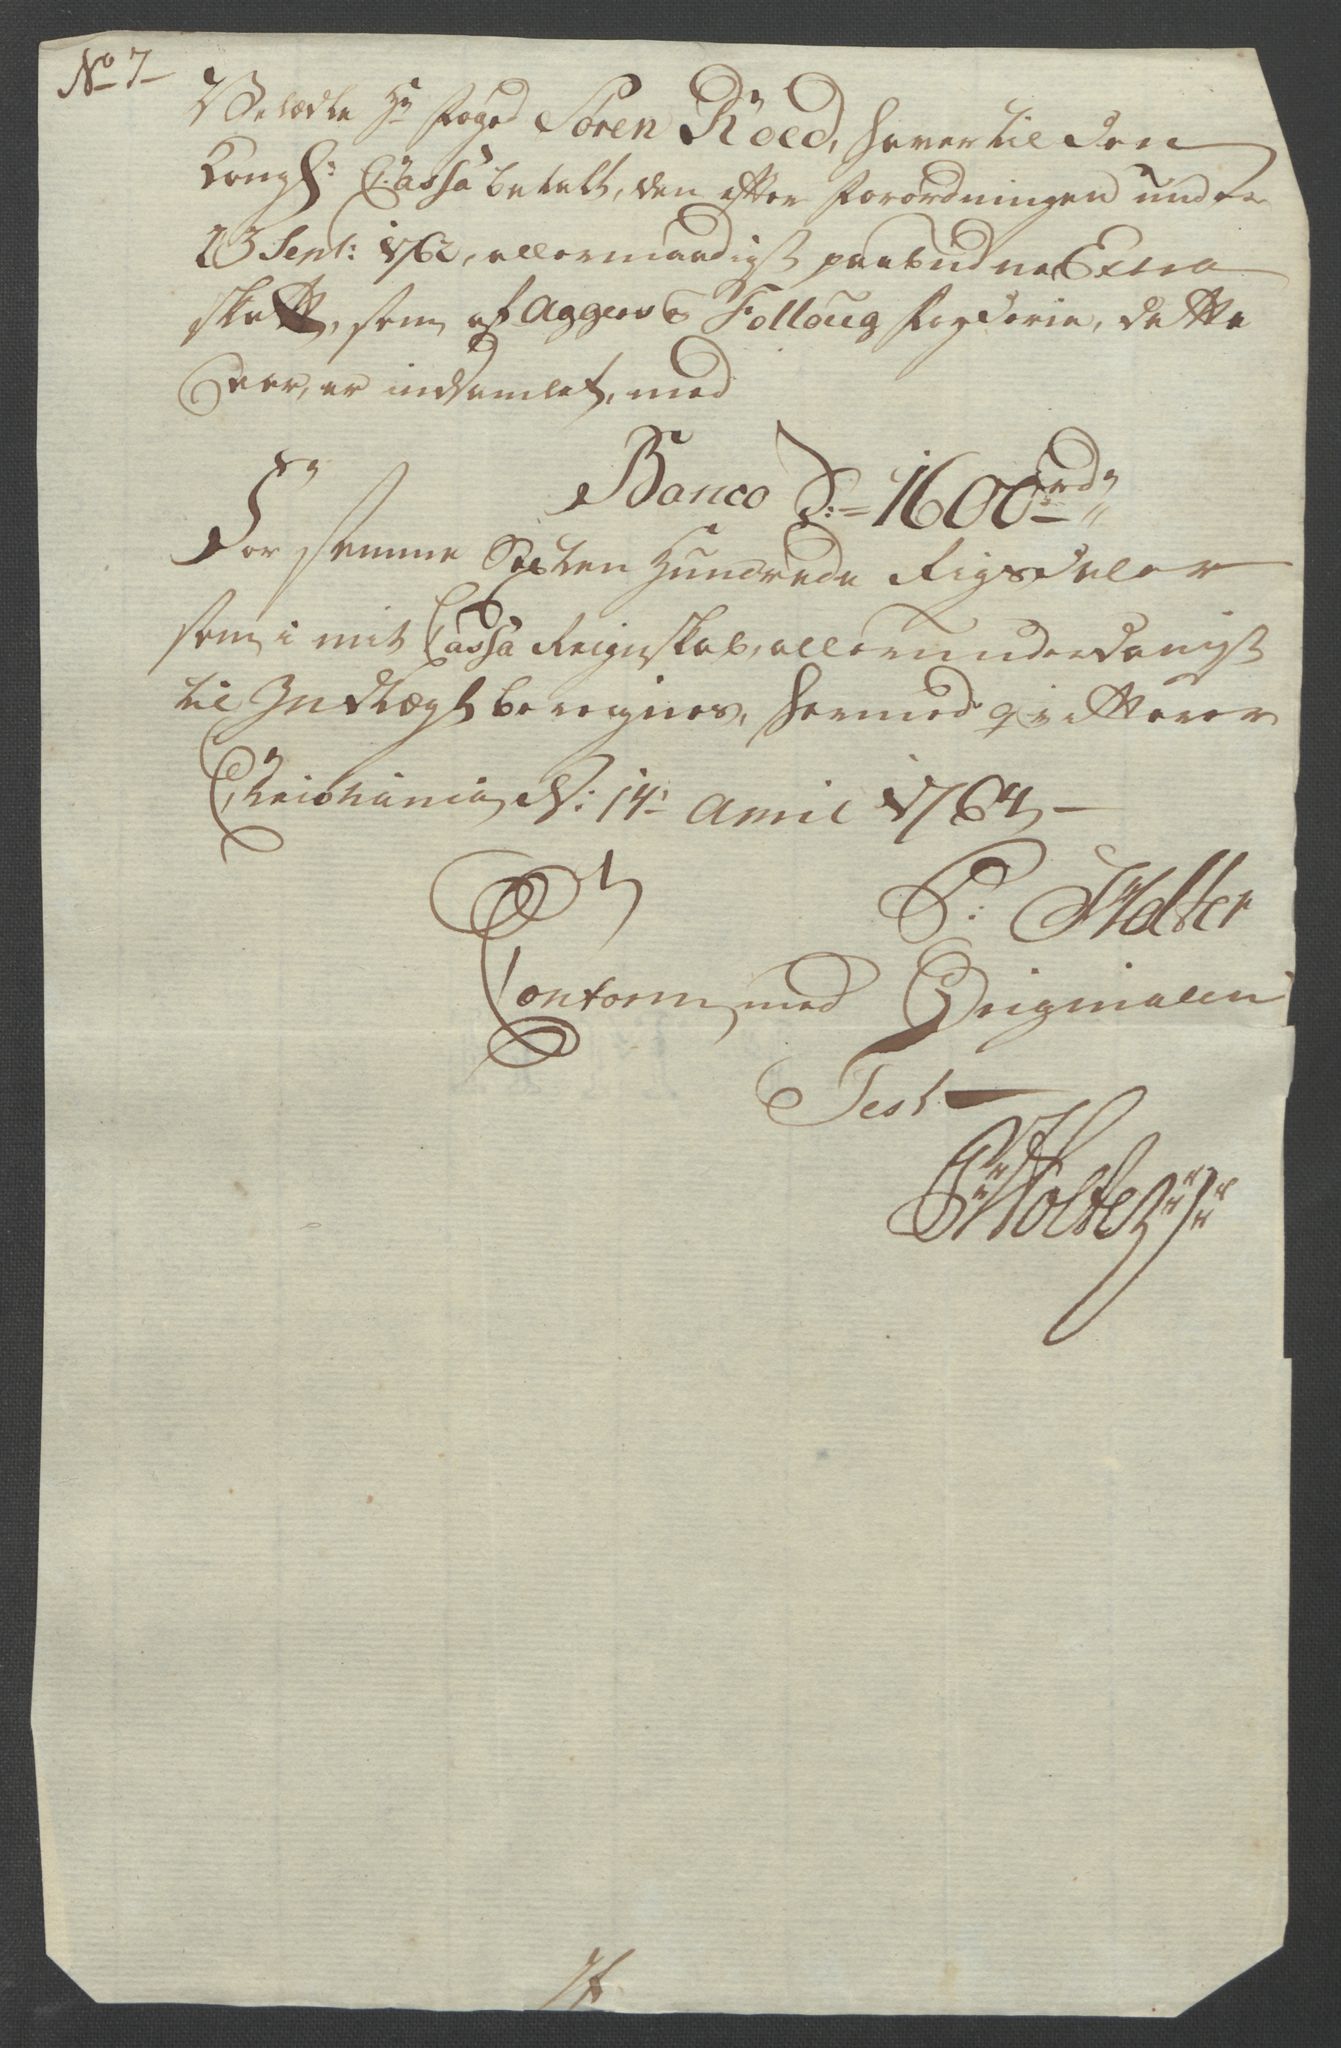 No 7
Velædle Hr Foged Sören Röed, haver til den
Kongl: Cassa betalt, den efter Forordningen under
23 Sept: 1762, allernaadigst paabudne Extra
skatt, som af Aggers & Folloug Fogderie, dette
Aar, er indsamlet, med
Banco S:= 1600 rd
For samme Sexten Hundrede Rigsdaler
som i mit Cassa Reignskab, allerunderdanigst
til Indtægt beregnes, hermed qvitterer
Christiania d: 14 April 1764
P: Holter
Conform med Originalen
Test
P Holter